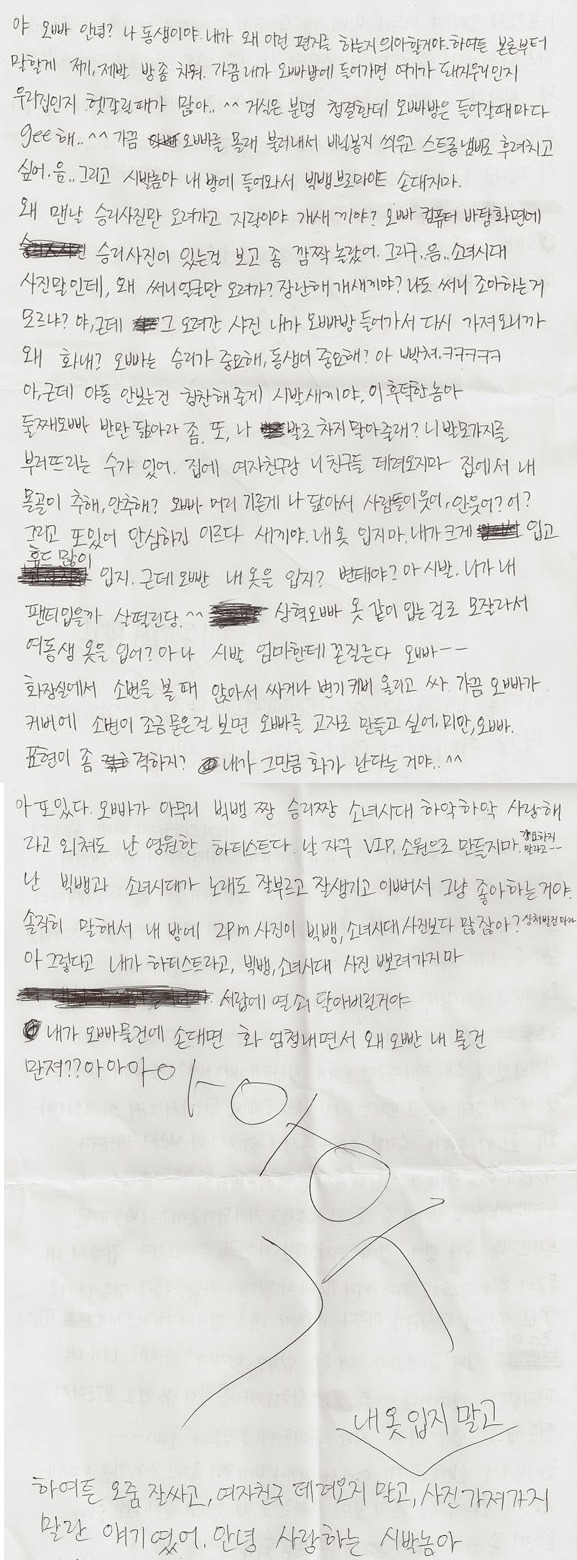 야 오빠 안녕? 나 동생이야. 내가 왜 이런 편지를 하는지 의아할거야. 하여튼 본론부터
말할게 제기, 제발 방 좀 치워. 가끔 내가 오빠방에 들어가면 여기가 돼지우리인지
우리집인지 헷갈릴때가 많아.. ^^ 거실은 분명 청결한데 오빠방은 들어갈때마다
gee해..^^ 가끔 오빠를 몰래 불러내서 비닐봉지 씌우고 스트롱냄비로 후려치고
싶어. 음.. 그리고 시발놈아 내 방에 들어와서 빅뱅브로마이드 손대지마.
왜 맨날 승리사진만 오려가고 지랄이야 개새끼야? 오빠 컴퓨터 바탕화면에
승리사진이 있는걸 보고 좀 깜짝 놀랐어. 그리구.. 음.. 소녀시대
사진말인데, 왜 써니얼굴만 오려가? 장난해 개새끼야? 나도 써니 조아하는거
모르냐? 야, 근데 그 오려간 사진 내가 오빠방 들어가서 다시 가져오니까
왜 화내? 오빠는 승리가 중요해, 동생이 중요해? 아 빡쳐.ㅋㅋㅋㅋㅋ
아, 근데 야동 안보는건 칭찬해줄게 시발새끼야, 이 후덕한놈아
둘째오빠 반만 닮아라 좀. 또, 나 발로 차지 말아줄래? 니 발모가지를
부러뜨리는 수가 있어. 집에 여자친구랑 니 친구들 데려오지마 집에서 내
몰골이 추해, 안추해? 오빠 머리 기른게 나 닮아서 사람들이 웃어, 안웃어? 어?
그리고 또있어 안심하긴 이르다 새끼야. 내 옷 입지마. 내가 크게 입고
후드 많이
입지. 근데 오빤 내 옷을 입지? 변태야? 아 시발. 니가 내
팬티입을까 살떨린당.^^ 상혁오빠 옷 같이 입는걸로 모잘라서
여동생 옷을 입어? 아 나 시발 엄마한테 꼰질는다 오빠--
화장실에서 소변을 볼 때 앉아서 싸거나 변기커버 올리고 싸. 가끔 오빠가
커버에 소변이 조금 묻은걸 보면 오빠를 고자로 만들고 싶어. 미안, 오빠.
표현이 좀 격하지? 내가 그만큼 화가 난다는 거야..^^
아 또있다. 오빠가 아무리 빅뱅 짱 승리짱 소녀시대 하악하악 사랑해
라고 외쳐도 난 영원한 하티스트다. 날 자꾸 VIP, 소원으로 만들지마. 강요하지 말라고--
난 빅뱅과 소녀시대가 노래도 잘부르고 잘생기고 이뻐서 그냥 좋아하는거야.
솔직히 말해서 내 방에 2pm 사진이 빅뱅, 소녀시대 사진보다 많잖아?
아 그렇다고 내가 하티스트라고, 빅뱅, 소녀시대 사진 뽀려가지마
서랍에 열쇠 달아버릴거야
내가 오빠물건에 손대면 화 엄청내면서 왜 오빤 내 물건
만져??아아아아아앗
내 옷 입지 말고
하여튼 오줌 잘싸고, 여자친구 데려오지 말고, 사진 가져가지
말란 얘기였어. 안녕 사랑하는 시발놈아